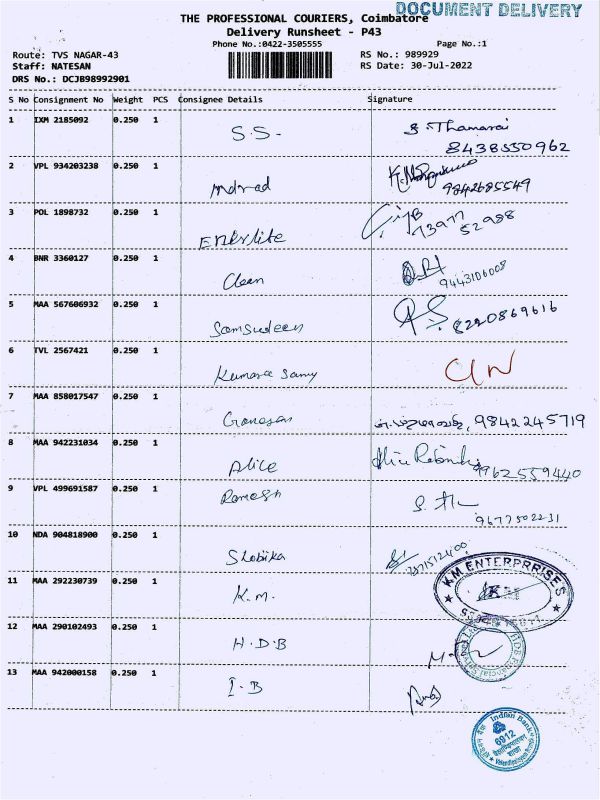 DOCUMENT DELIVERY
THE PROFESSIONAL COURIERS, Coimbatore
Delivery Runsheet - P43
Phone No.:0422-3505555
Page No.:1
Route: TVS NAGAR-43
RS No.: 989929
Staff: NATESAN
RS Date: 30-Jul-2022
DRS No.: DCJB98992901
S No Consignment No Weight PCS Consignee Details Signature
1 IXM 2185092 0.250 1 S.S. S. Thamarai
8438550962
2 VPL 934203238 0.250 1
9842685549
3 POL 1898732 0.250 1 Enerlite 73977
52988
4 BNR 3360127 0.250 1 Clean
9443106008
5 MAA 567606932 0.250 1 Samsudeen 8220869616
6 TVL 2567421 0.250 1 Kumara Samy
7 MAA 858017547 0.250 1 Ganesan 9842245719
8 MAA 942231034 0.250 1 Alice
9962559440
9 VPL 499691587 0.250 1 Ramesh
9677502231
10 NDA 904818900 0.250 1 Shobika
11 MAA 292230739 0.250 1 K.M. KM ENTERPRRISES
12 MAA 290102493 0.250 1 H.D.B
13 MAA 942000158 0.250 1 I.B
Indian Bank
6912